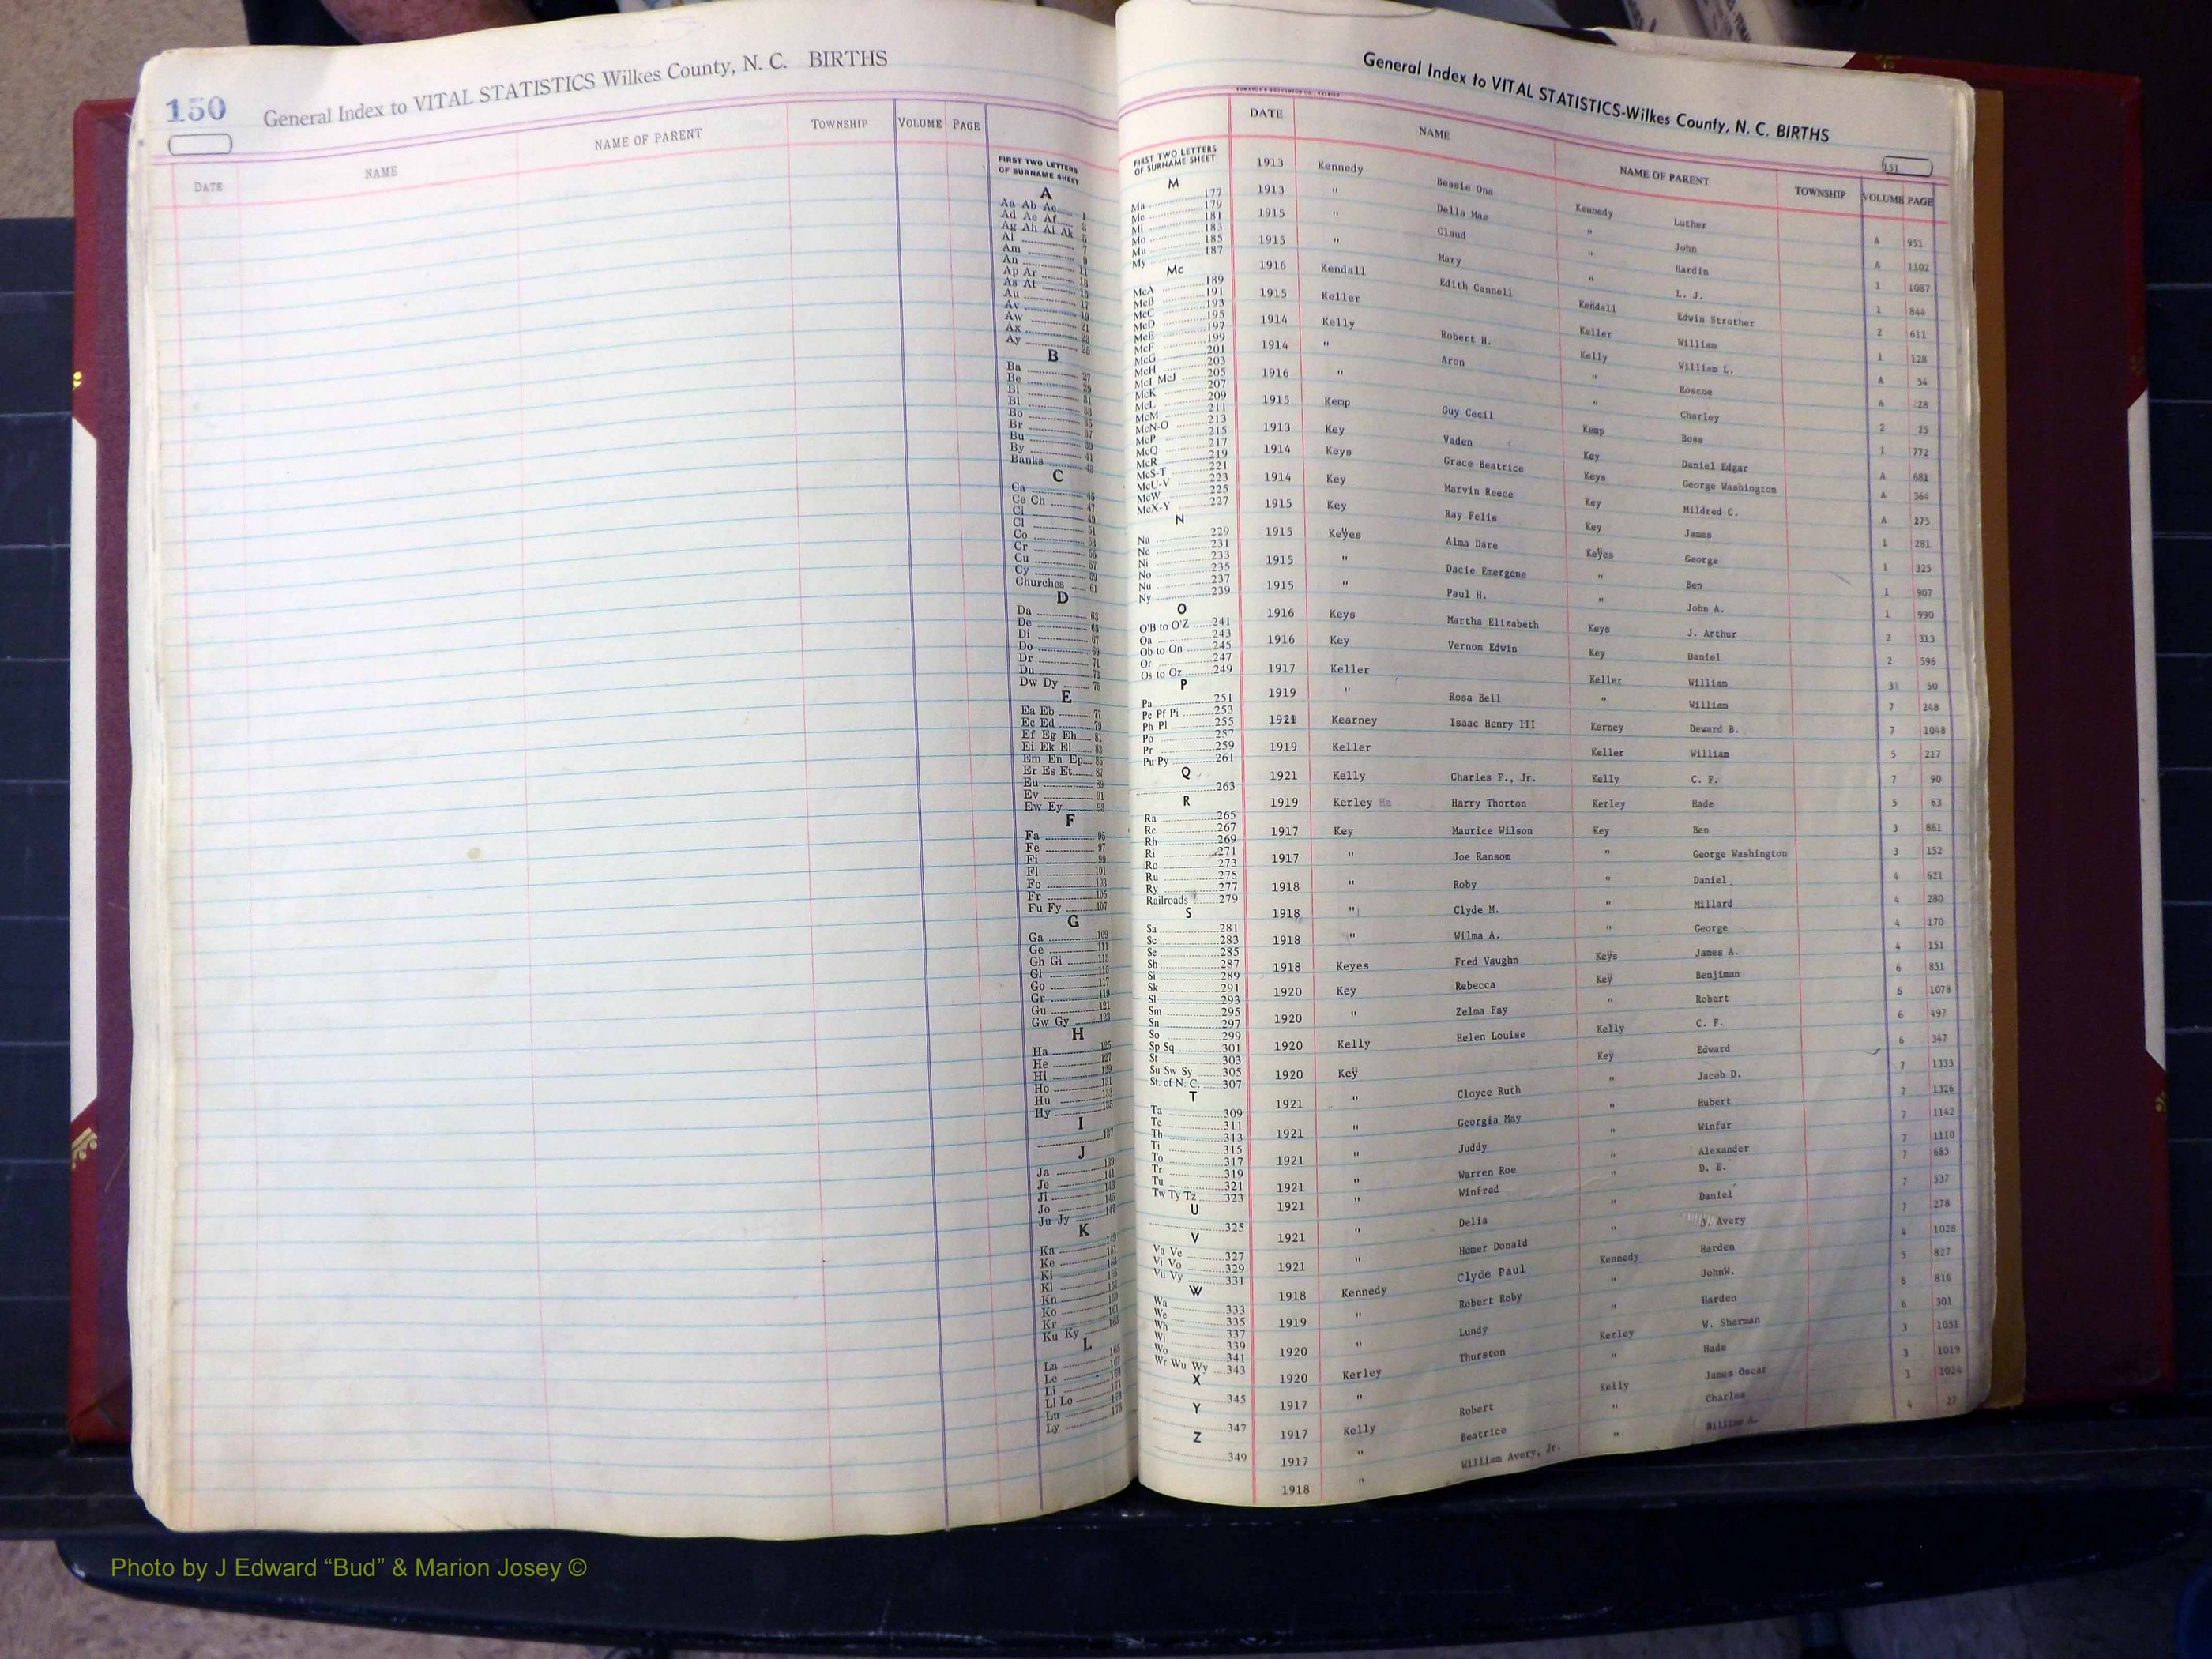 150 General Index to VITAL STATISTICS Wilkes County, N. C. BIRTHS
DATE NAME NAME OF PARENT TOWNSHIP VOLUME PAGE
FIRST TWO LETTERS
OF SURNAME SHEET
A
Aa Ab Ac 1
Ad Ae Af 3
Ag Ah Ai Ak 5
Al 7
Am 9
An 11
Ap Ar 13
As At 15
Au 17
Av 19
Aw 21
Ax 23
Ay 25
B
Ba 27
Be 29
Bi 31
Bl 33
Bo 35
Br 37
Bu 39
By 41
Banks 43
C
Ca 45
Ce Ch 47
Ci 49
Cl 51
Co 53
Cr 55
Cu 57
Cy 59
Churches 61
D
Da 63
De 65
Di 67
Do 69
Dr 71
Du 73
Dw Dy 75
E
Ea Eb 77
Ec Ed 79
Ef Eg Eh 81
Ei Ek El 83
Em En Ep 85
Er Es Et 87
Eu 89
Ev 91
Ew Ey 93
F
Fa 95
Fe 97
Fi 99
Fl 101
Fo 103
Fr 105
Fu Fy 107
G
Ga 109
Ge 111
Gh Gi 113
Gl 115
Go 117
Gr 119
Gu 121
Gw Gy 123
H
Ha 125
He 127
Hi 129
Ho 131
Hu 133
Hy 135
I
137
J
Ja 139
Je 141
Ji 143
Jo 145
Ju Jy 147
K
Ka 149
Ke 151
Ki 153
Kl 155
Kn 157
Ko 159
Kr 161
Ku Ky 163
L
La 165
Le 167
Li 169
Ll Lo 171
Lu 173
Ly 175
General Index to VITAL STATISTICS-Wilkes County, N. C. BIRTHS
EDWARDS & BROUGHTON CO., RALEIGH
151
DATE NAME NAME OF PARENT TOWNSHIP VOLUME PAGE
FIRST TWO LETTERS
OF SURNAME SHEET
M
Ma 177
Me 179
Mi 181
Mo 183
Mu 185
My 187
Mc
McA 189
McB 191
McC 193
McD 195
McE 197
McF 199
McG 201
McH 203
McI McJ 205
McK 207
McL 209
McM 211
McN-O 213
McP 215
McQ 217
McR 219
McS-T 221
McU-V 223
McW 225
McX-Y 227
N
Na 229
Ne 231
Ni 233
No 235
Nu 237
Ny 239
O
O'B to O'Z 241
Oa 243
Ob to On 245
Or 247
Os to Oz 249
P
Pa 251
Pe Pf Pi 253
Ph Pl 255
Po 257
Pr 259
Pu Py 261
Q
263
R
Ra 265
Re 267
Rh 269
Ri 271
Ro 273
Ru 275
Ry 277
Railroads 279
S
Sa 281
Sc 283
Se 285
Sh 287
Si 289
Sk 291
Sl 293
Sm 295
Sn 297
So 299
Sp Sq 301
St 303
Su Sw Sy 305
St. of N. C. 307
T
Ta 309
Te 311
Th 313
Ti 315
To 317
Tr 319
Tu 321
Tw Ty Tz 323
U
325
V
Va Ve 327
Vi Vo 329
Vu Vy 331
W
Wa 333
We 335
Wh 337
Wi 339
Wo 341
Wr Wu Wy 343
X
345
Y
347
Z
349
1913 Kennedy Bessie Ona Kennedy Luther A 951
1913 " Della Mae " John A 1102
1915 " Claud " Hardin 1 1087
1915 " Mary " L. J. 1 844
1916 Kendall Edith Cannell Kendall Edwin Strother 2 611
1915 Keller Keller William 1 128
1914 Kelly Robert H. Kelly William L. A 54
1914 " Aron " Roscoe A 28
1916 " " Charley 2 25
1915 Kemp Guy Cecil Kemp Boss 1 772
1913 Key Vaden Key Daniel Edgar A 681
1914 Keys Grace Beatrice Keys George Washington A 364
1914 Key Marvin Reece Key Mildred C. A 275
1915 Key Ray Felis Key James 1 281
1915 Keyes Alma Dare Keyes George 1 325
1915 " Dacie Emergene " Ben 1 907
1915 " Paul H. " John A. 1 990
1916 Keys Martha Elizabeth Keys J. Arthur 2 313
1916 Key Vernon Edwin Key Daniel 2 596
1917 Keller Keller William 3 50
1919 " Rosa Bell " William 7 248
1921 Kearney Isaac Henry III Kerney Deward B. 7 1048
1919 Keller Keller William 5 217
1921 Kelly Charles F., Jr. Kelly C. F. 7 90
1919 Kerley Harry Thorton Kerley Hade 5 63
1917 Key Maurice Wilson Key Ben 3 861
1917 " Joe Ransom " George Washington 3 152
1918 " Roby " Daniel 4 621
1918 " Clyde M. " Millard 4 280
1918 " Wilma A. " George 4 170
1918 Keyes Fred Vaughn Keys James A. 4 151
1920 Key Rebecca Key Benjiman 6 851
1920 " Zelma Fay " Robert 6 1078
1920 Kelly Helen Louise Kelly C. F. 6 497
1920 Key Key Edward 6 347
1921 " Cloyce Ruth " Jacob D. 7 1333
1921 " Georgia May " Hubert 7 1326
1921 " Juddy " Winfar 7 1142
1921 " Warren Roe " Alexander 7 1110
1921 " Winfred " D. E. 7 685
1921 " Delia " Daniel 7 337
1921 " Homer Donald " J. Avery 7 278
1918 Kennedy Clyde Paul Kennedy Harden 4 1028
1919 " Robert Roby " JohnW. 5 827
1920 " Lundy " Harden 6 816
1920 Kerley Thurston Kerley W. Sherman 6 301
1917 " " Hade 3 1051
1917 Kelly Robert Kelly James Oscar 3 1019
1917 " Beatrice " Charles 3 1024
1918 " William Avery, Jr. " William A. 4 27
Photo by J Edward “Bud” & Marion Josey ©